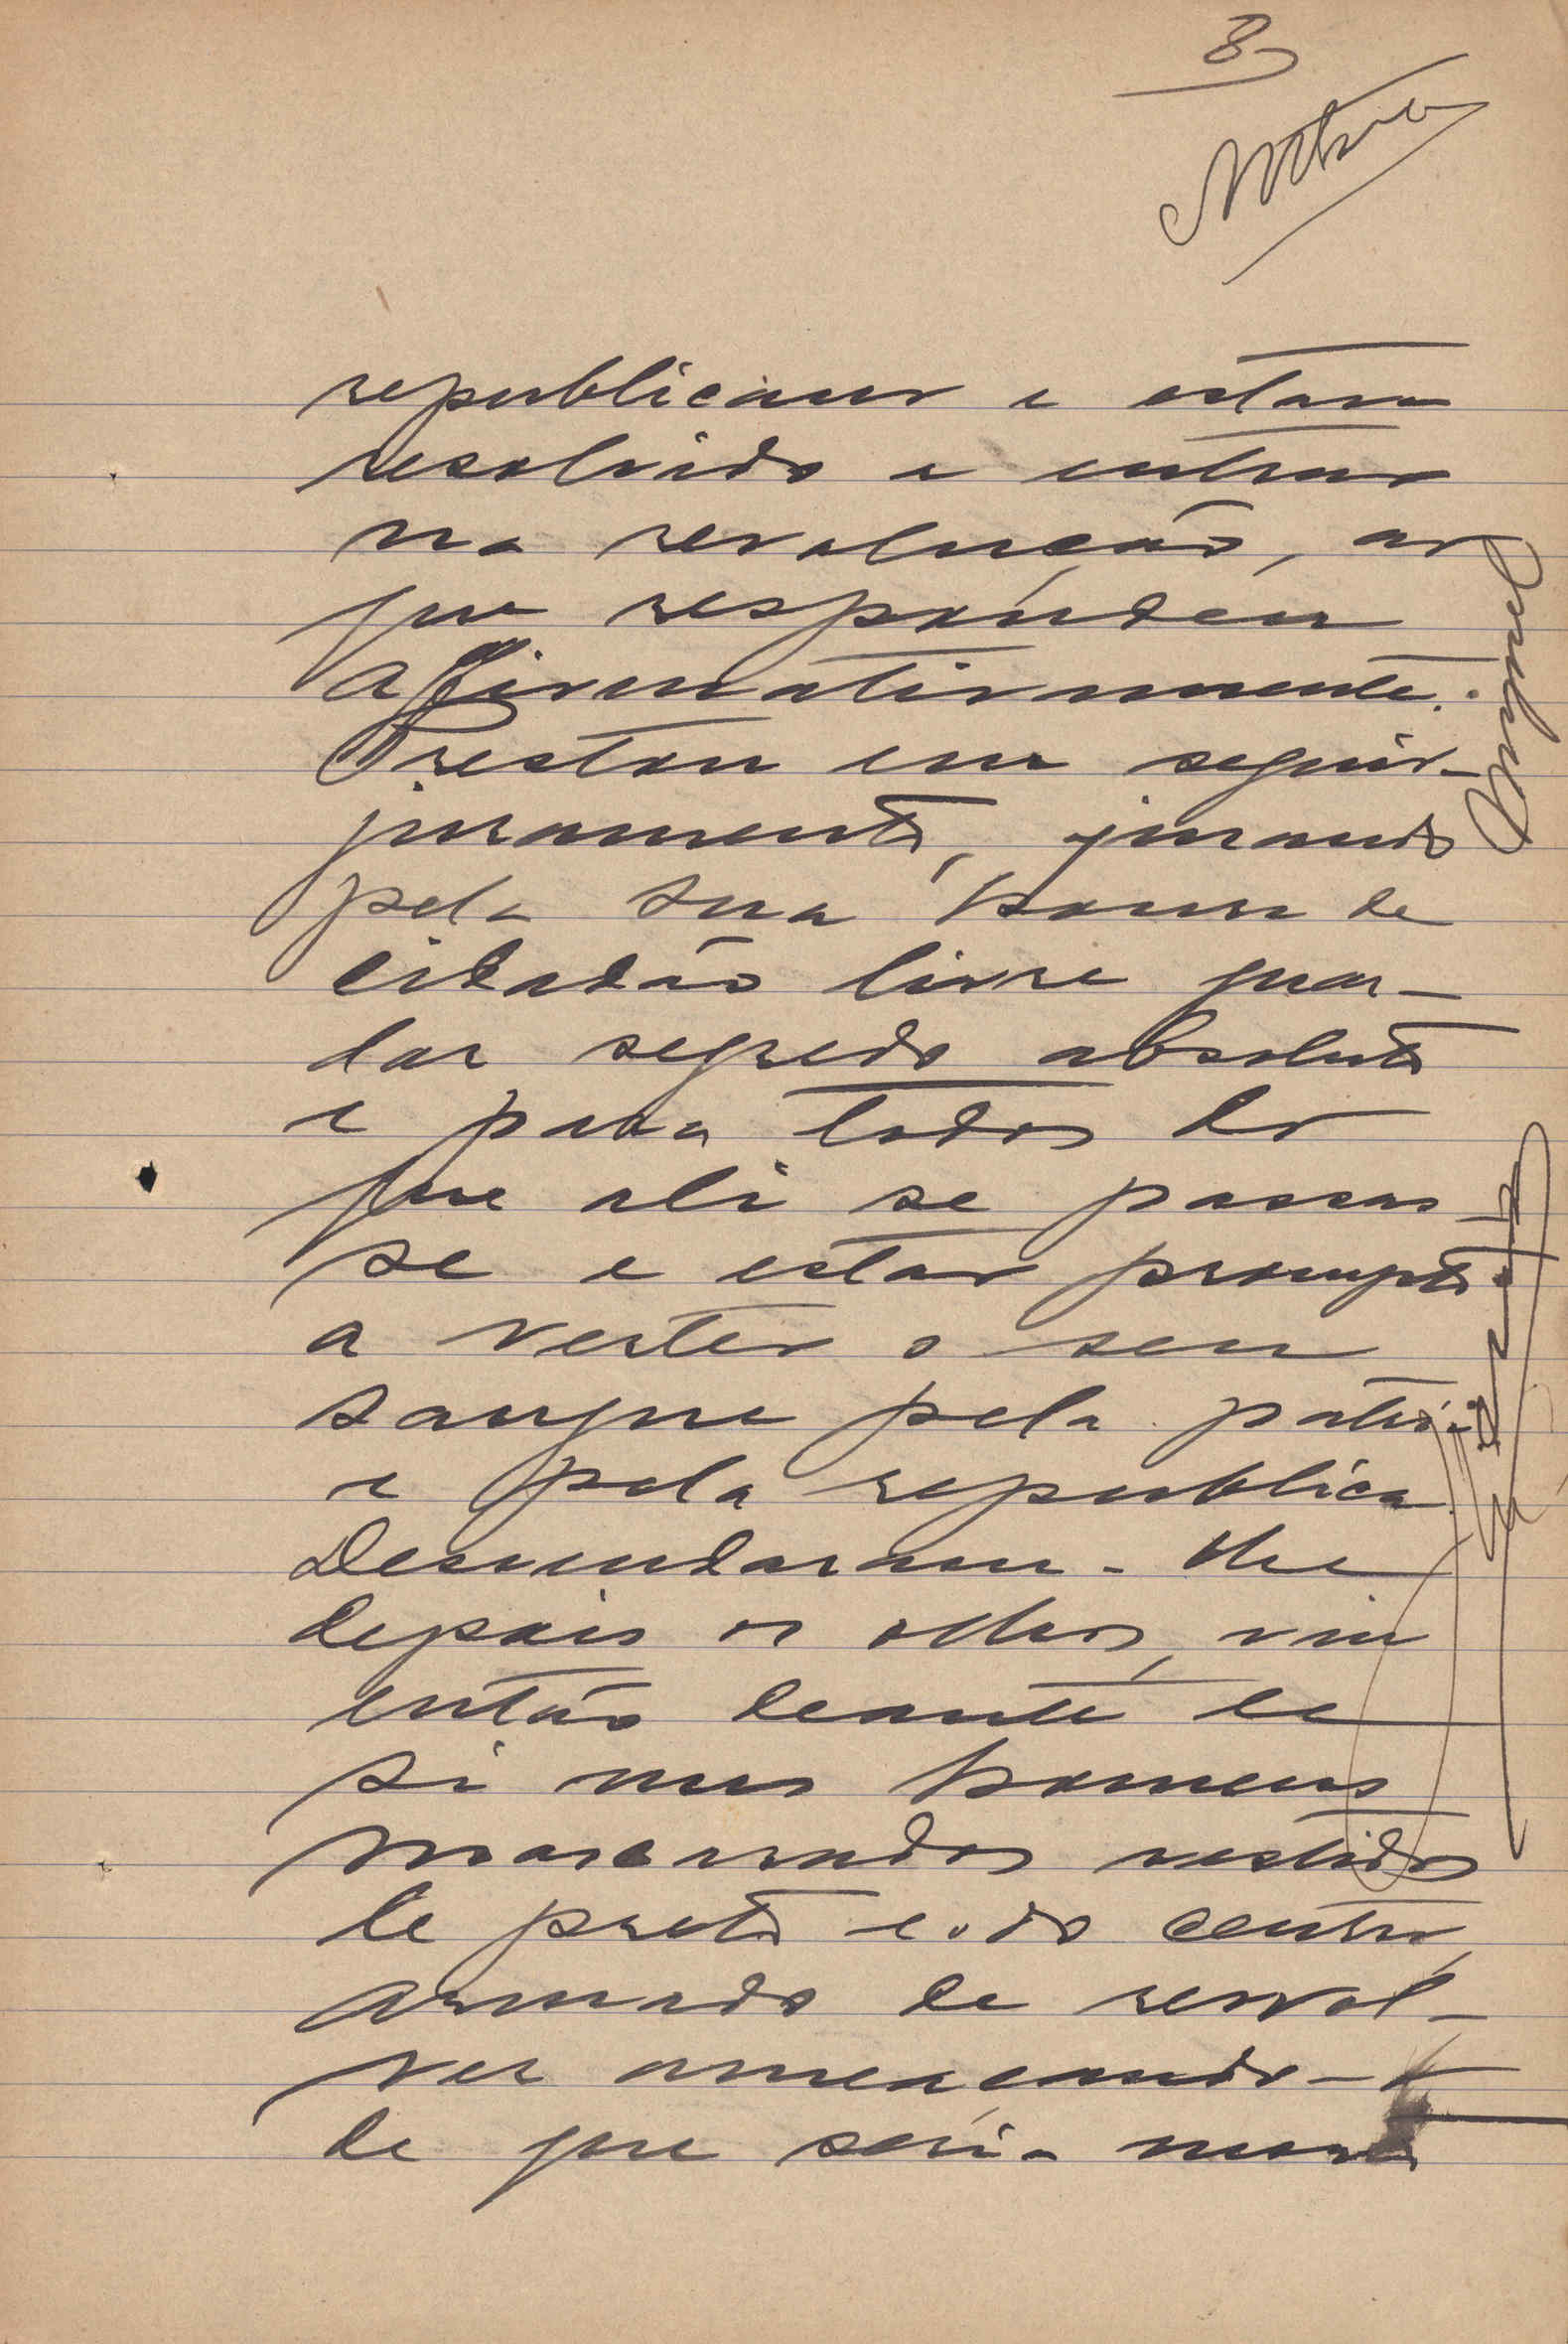 8
republicano e estava
resolvido a entrar
na revolução, ao
que respondeu
affirmativamente.
Prestou em seguid-
juramento, jurando
pela sua honra de
cidadão livre guar-
dar segredo absoluto
e para todos do
que ali se passas
se e estar prompto
a verter o seu
sangue pela patria
e pela republica.
Desvendaram-lhe
depois os olhos, viu
então deante de
si uns homens
mascarados vestidos
de preto e o do centro,
armado de revol-
ver ameaçando-o
de que seria morto